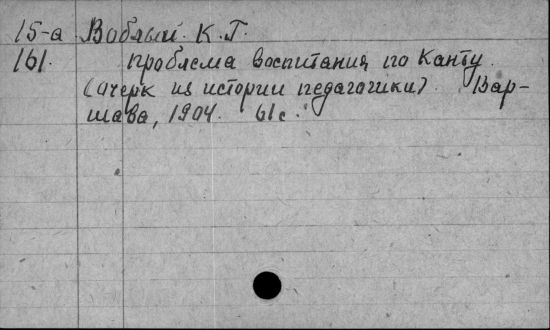 15-а Воблый К. Г.
161. Проблема воспитания по Канту.
(очерк из истории педагогики). Вар-
шава, 1904. 61 с.